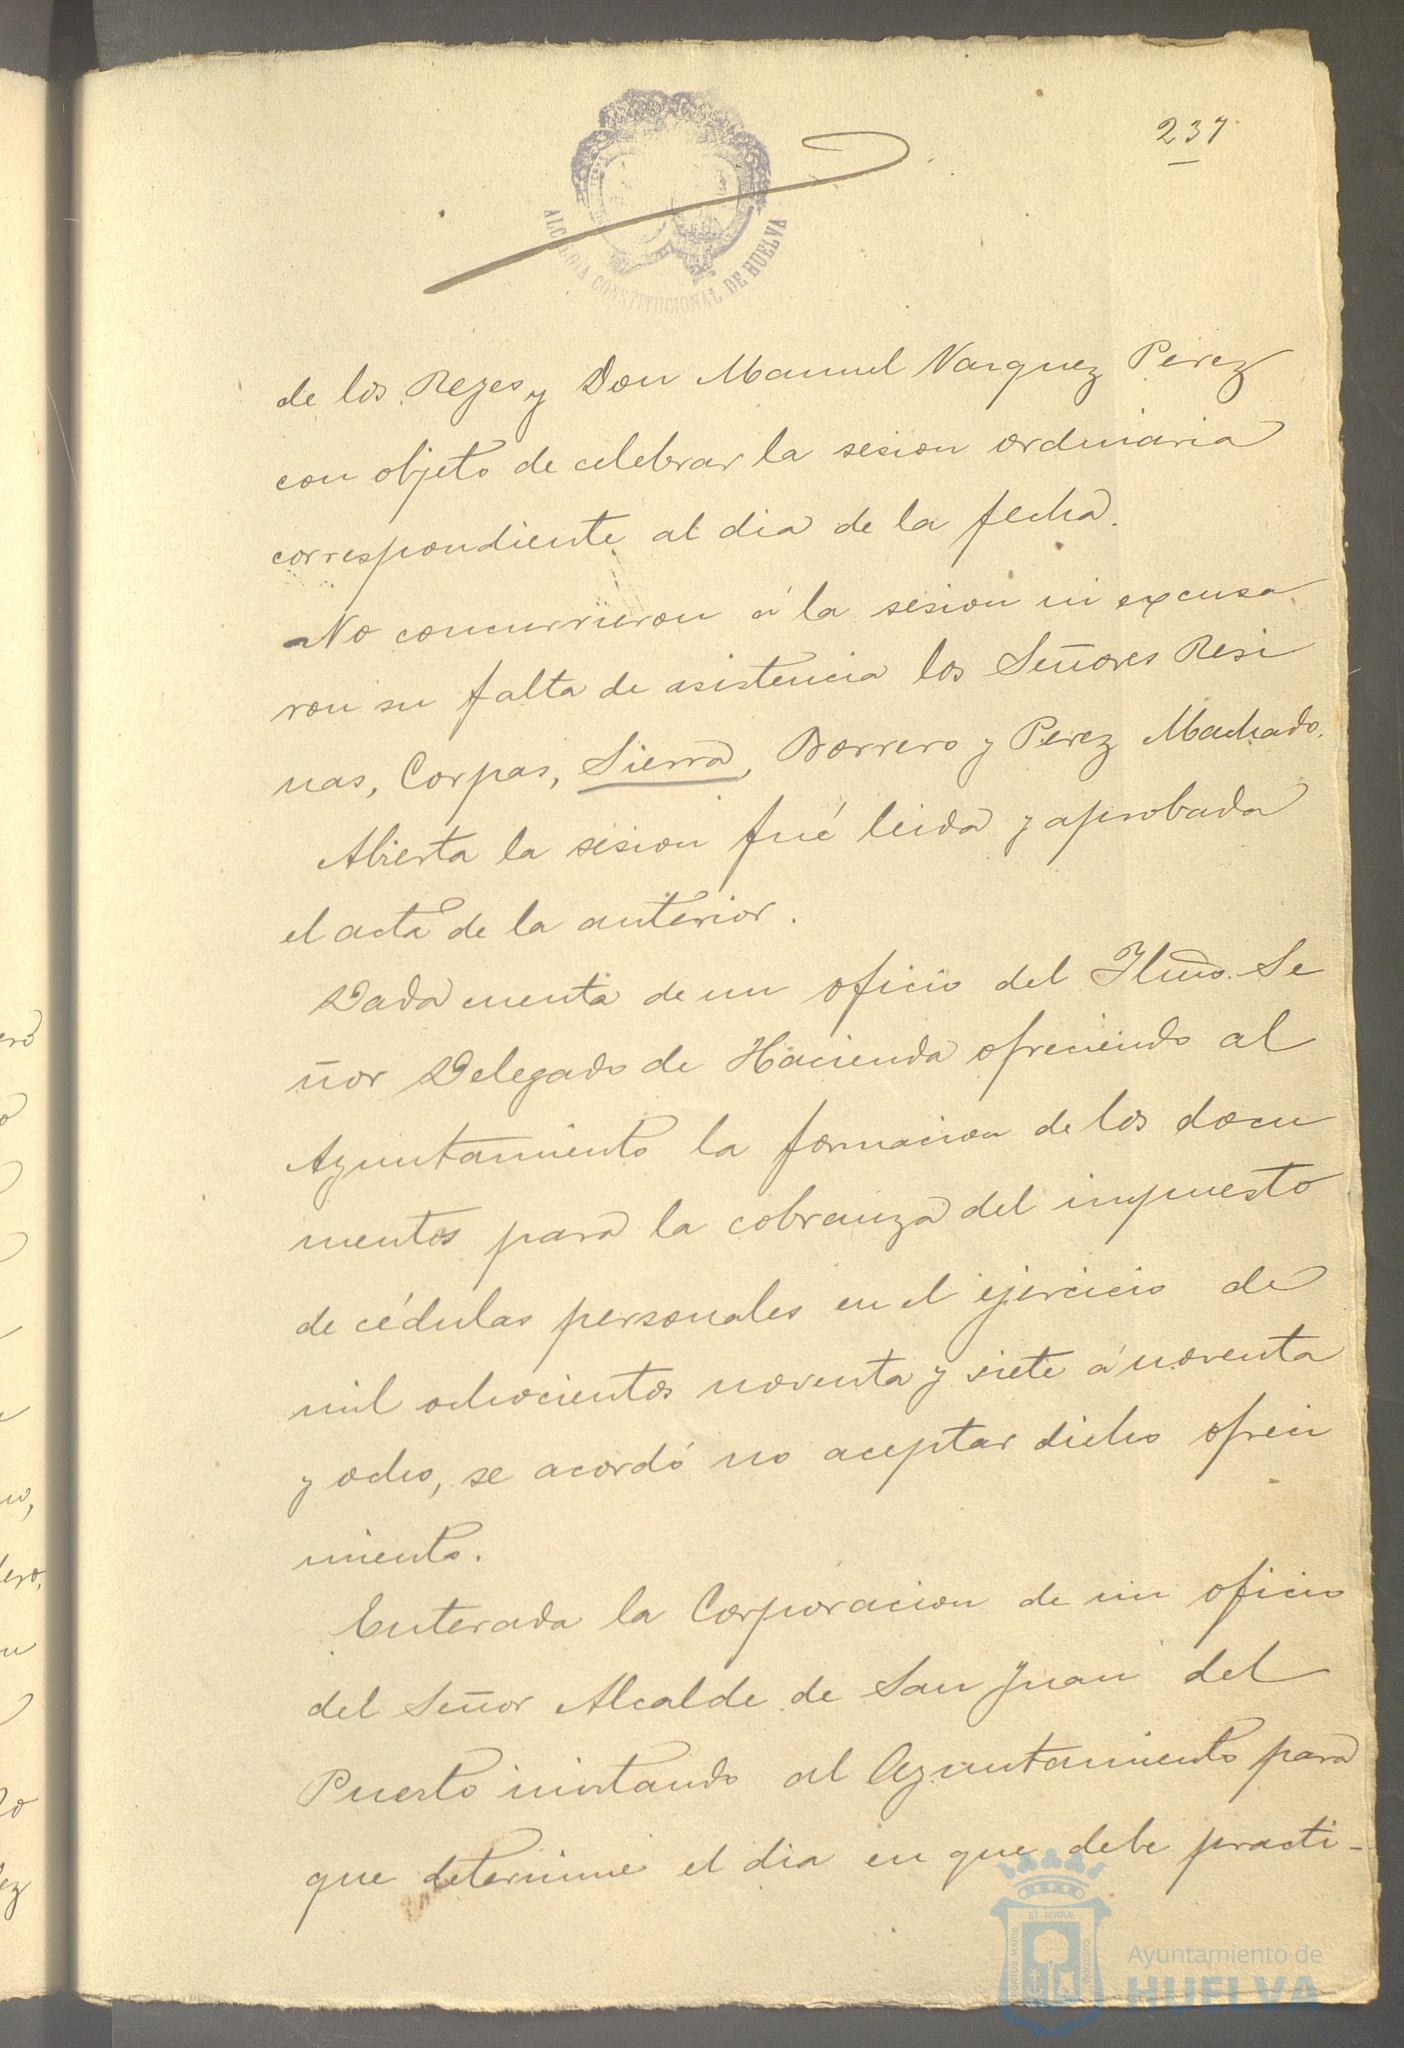 237
ALCALDIA CONSTITUCIONAL DE HUELVA
de los Reyes y Don Manuel Vazquez Perez
con objeto de celebrar la sesion ordinaria
correspondiente al dia de la fecha.
No concurrieron á la sesion ni excusa
ron su falta de asistencia los Señores Resi
nas, Corpas, Sierra, Borrero y Perez Machado.
Abierta la sesion fué leida y aprobada
el acta de la anterior.
Dada cuenta de un oficio del Iltmo. Se
ñor Delegado de Hacienda ofreciendo al
Ayuntamiento la formacion de los docu
mentos para la cobranza del impuesto
de cédulas personales en el ejercicio de
mil ochocientos noventa y siete á noventa
y ocho, se acordó no aceptar dicho ofreci
miento.
Enterada la Corporacion de un oficio
del Señor Alcalde de San Juan del
Puerto invitando al Ayuntamiento para
que determine el dia en que debe practi-
Ayuntamiento de
HUELVA